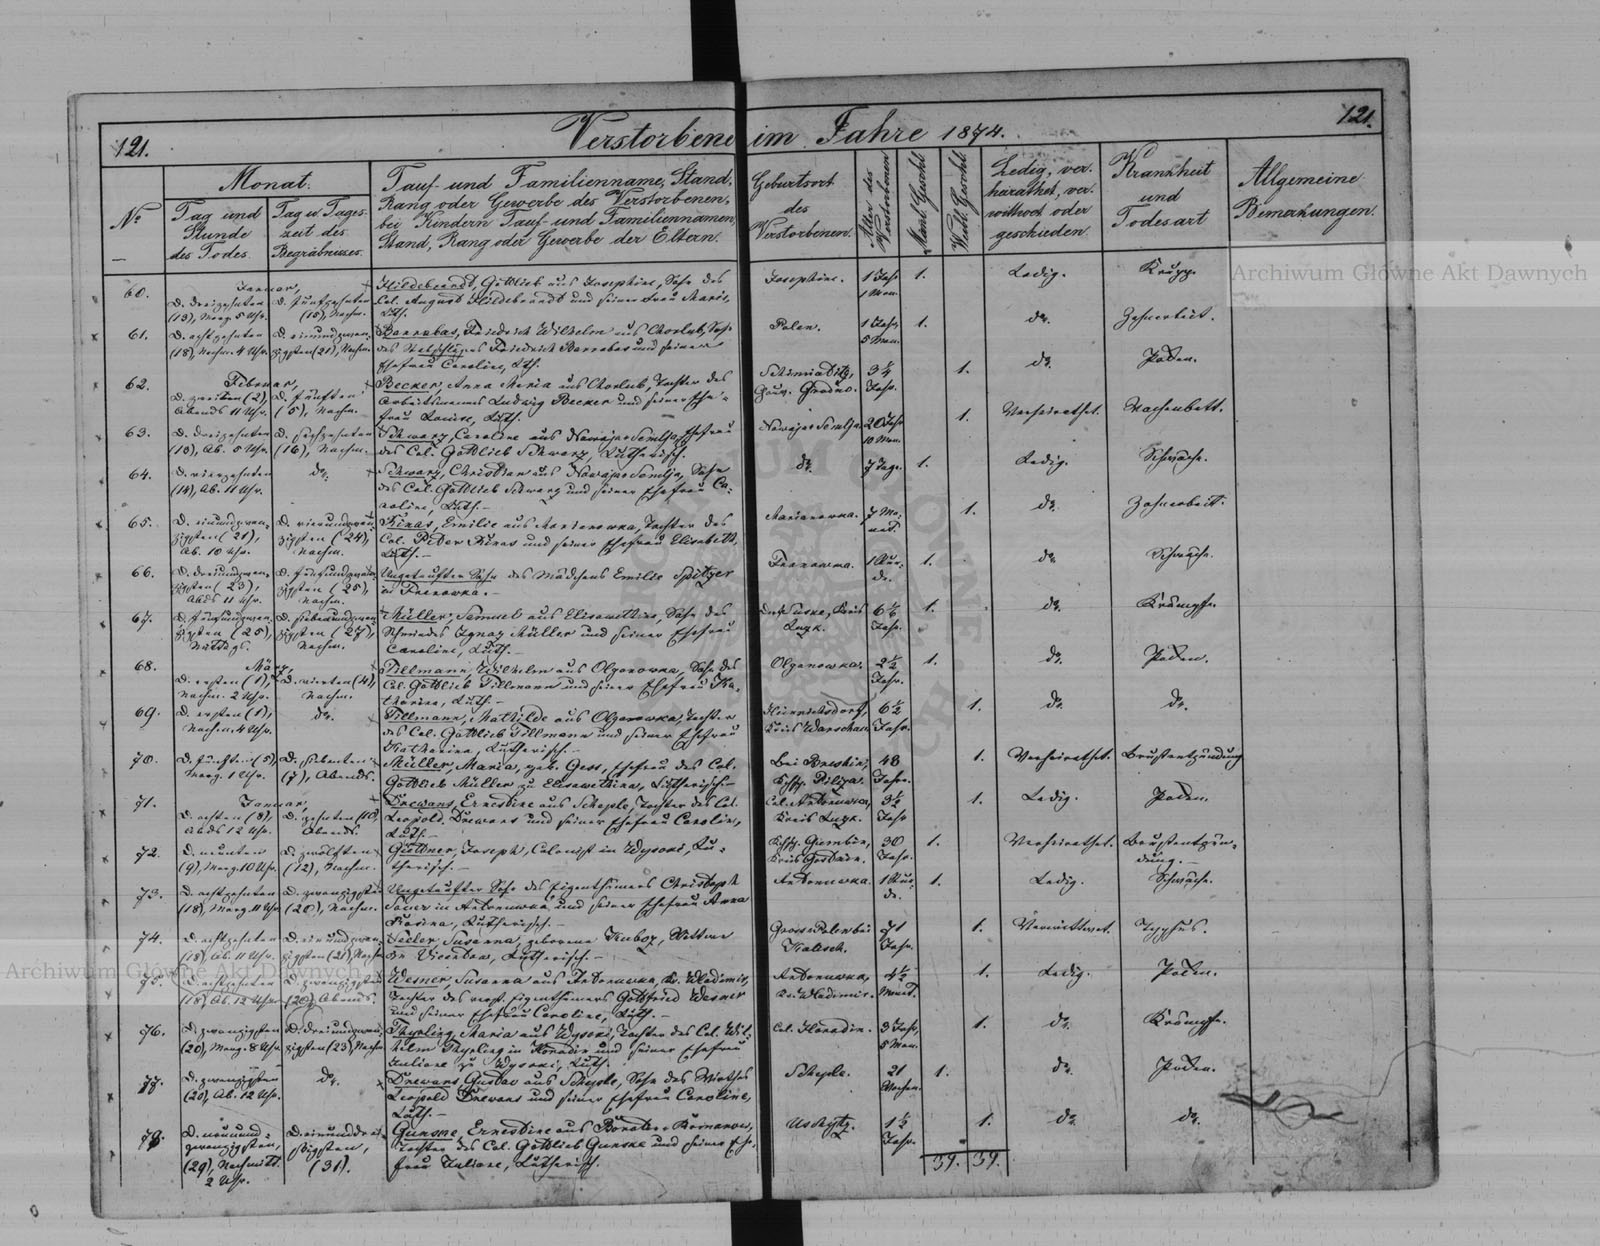 121.
Verstorbene im Jahre 1874.
121.
№
Monat.
Tag und
Stunde
des Todes.
Tag u. Tages-
zeit des
Begräbnisses.
Tauf- und Familienname, Stand,
Rang oder Gewerbe des Verstorbenen,
bei Kindern Tauf- und Familiennamen,
Stand, Rang oder Gewerbe der Eltern.
Geburtsort
des
Verstorbenen.
Alter des
Verstorbenen
Männl. Geschl.
Weibl. Geschl.
Ledig, ver-
heirathet, ver-
wittwet oder
geschieden
Krankheit
und
Todesart
Allgemeine
Bemerkungen.
60.
Januar,
D. dreizehnten
(13), Morg. 5 Uhr.
D. fünfzehnten
(15), Nachm.
Hildebrandt, Gottlieb aus Josephine, Sohn des
Col. August Hildebrandt und seiner Frau Marie,
Luth.
Josephine.
1 Jahr
1 Mon.
1.
Ledig.
Krupp.
61.
D. achtzehnten
(18), Nachm. 4 Uhr.
D. einundzwan-
zigsten (21), Nachm.
Barrabas, Friedrich Wilhelm aus Chorlub, Sohn
des Friedrich Barrabas und seiner
Ehefrau Caroline, Luth.
Polen.
1 Jahr
5 Mon.
1.
do.
Zahnarbeit.
62.
Februar,
D. zweiten (2),
Abends 11 Uhr.
D. fünften
(5), Nachm.
Becker, Anna Maria aus Chorlub, Tochter des
Arbeitsmannes Ludwig Becker und seiner Ehe-
frau Louise, Luth.
Gouv. Grodno.
3 1/4
Jahr.
1.
do.
Pocken.
63.
D. dreizehnten
(13), Ab. 5 Uhr.
D. sechzehnten
(16), Nachm.
Schwarz, Caroline aus Nowaja Semlja, Ehefrau
des Col. Gottlieb Schwarz, Lutherisch.
Nowaja Semlja.
20 Jahr
10 Mon.
1.
Verheirathet.
Wochenbett.
64.
D. vierzehnten
(14), Ab. 11 Uhr.
do.
Schwarz, Christian aus Nowaja Semlja, Sohn
des Col. Gottlieb Schwarz und seiner Ehefrau Ca-
roline, Luth.
do.
7 Tage.
1.
Ledig.
Schwäche.
65.
D. einundzwan-
zigsten (21),
Ab. 10 Uhr.
D. vierundzwan-
zigsten (24),
Nachm.
Kinas, Emilie aus Marianowka, Tochter des
Col. Peter Kinas und seiner Ehefrau Elisabeth,
Luth.
Marianowka.
7 Mo-
nat.
1.
do.
Zahnarbeit.
66.
D. dreiundzwan-
zigsten (23),
Abds 11 Uhr.
D. fünfundzwan-
zigsten (25),
Nachm.
Ungetaufter Sohn des Mädchens Emilie Spitzer
in
1 Stun-
de.
1.
do.
Schwäche.
67.
D. fünfundzwan-
zigsten (25),
Mittags.
D. siebenundzwan-
zigsten (27),
Nachm.
Müller, Samuel aus Elisawethin, Sohn des
Schmiedes Ignaz Müller und seiner Ehefrau
Caroline, Luth.
Kreis
Luzk.
Jahr.
1.
do.
Krämpfe.
68.
März,
D. ersten (1),
Nachm. 2 Uhr.
D. vierten (4),
Nachm.
Tillmann, Wilhelm aus Olganowka, Sohn des
Col. Gottlieb Tillmann und seiner Ehefrau Ka-
tharina, Luth.
Olganowka.
2 1/2
Jahr.
1.
do.
Pocken.
69.
D. ersten (1),
Nachm. 4 Uhr.
do.
Tillmann, Mathilde aus Olganowka, Tochter
des Col. Gottlieb Tillmann und seiner Ehefrau
Katharina, Lutherisch.
Heinrichsdorf,
Kreis Warschau.
6 1/2
Jahr.
1.
do.
do.
70.
D. fünften (5),
Morg. 1 Uhr.
D. siebenten
(7), Abends.
Müller, Maria, geb. Gess, Ehefrau des Col.
Gottlieb Müller zu Elisawethin, Lutherisch.
Bei
Pilica.
48
Jahr.
1.
Verheirathet.
Brustentzündung
71.
Januar,
D. achten (8),
Abds 12 Uhr.
D. zehnten (10),
Abends.
Drewans, Ernestine aus Scheple, Tochter des Col.
Leopold Drewans und seiner Ehefrau Caroline,
Luth.
Col. Antonuwka,
Kreis Luzk.
3 1/2
Jahr
1.
Ledig.
Pocken.
72.
D. neunten
(9), Morg. 10 Uhr.
D. zwölften
(12), Nachm.
Güttner, Joseph, Colonist in Wysoki, Lu-
therisch.
Kreis Gostinin.
30
Jahr.
1.
Verheirathet.
Brustentzün-
dung.
73.
D. achtzehnten
(18), Morg. 11 Uhr
D. zwanzigsten
(20), Nachm.
Ungetaufter Sohn des Eigenthümers Christoph
in Antonuwka und seiner Ehefrau Anna
Rosina, Lutherisch.
Antonuwka.
1 Stun-
de.
1.
Ledig.
Schwäche.
74.
D. achtzehnten
(18), Ab. 11 Uhr.
D. einundzwan-
zigsten (21), Nachm.
Susanna, geborene Wittwe
Lutherisch.
Gross Polen bei
Kalisch.
71
Jahr.
1.
Verwittwet.
Typhus.
75.
D. achtzehnten
(18), Ab. 12 Uhr
D. zwanzigsten
(20), Abends.
Wesner, Susanna aus Antonuwka, Kr. Wladimir,
Tochter des verst. Eigenthümers Gottfried Wesner
und seiner Ehefrau Caroline, Luth.
Antonuwka,
Kr. Wladimir.
4 1/2
Monat.
1.
Ledig.
Pocken.
76.
D. zwanzigsten
(20), Morg. 8 Uhr
D. dreiundzwan-
zigsten (23), Nachm
Maria aus Wysoki, Tochter des Col. Wil-
helm in Horadin und seiner Ehefrau
Juliane zu Wysoki, Luth.
Col. Horadin.
3 Jahr,
5 Mon.
1.
do.
Krämpfe.
77.
D. zwanzigsten
(20), Ab. 12 Uhr.
do.
Drewans, Gustav aus Scheple, Sohn des Wirthes
Leopold Drewans und seiner Ehefrau Caroline,
Luth.
Scheple.
21
Wochen.
1.
do.
Pocken.
78.
D. neunund-
zwanzigsten,
(29), Nachmitt.
2 Uhr.
D. einunddrei-
ssigsten,
(31).
Gunske, Ernestine aus
Tochter des Col. Gottlieb Gunske und seiner Ehe-
frau Juliane, Lutherisch.
1 1/2
Jahr.
1.
do.
do.
39. 39.
Archiwum Główne Akt Dawnych
Archiwum Główne Akt Dawnych